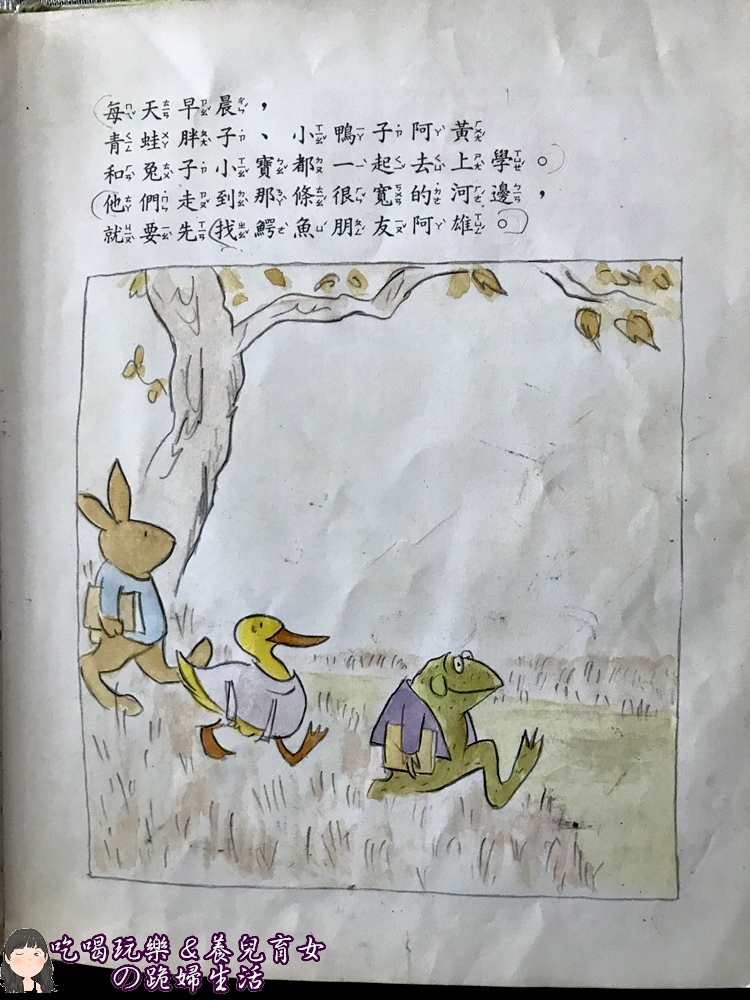 每天早晨，
青蛙胖子、小鴨子阿黃
和兔子小寶都一起去上學。
他們走到那條很寬的河邊，
就要先找鱷魚朋友阿雄。
吃喝玩樂&養兒育女
の跪婦生活